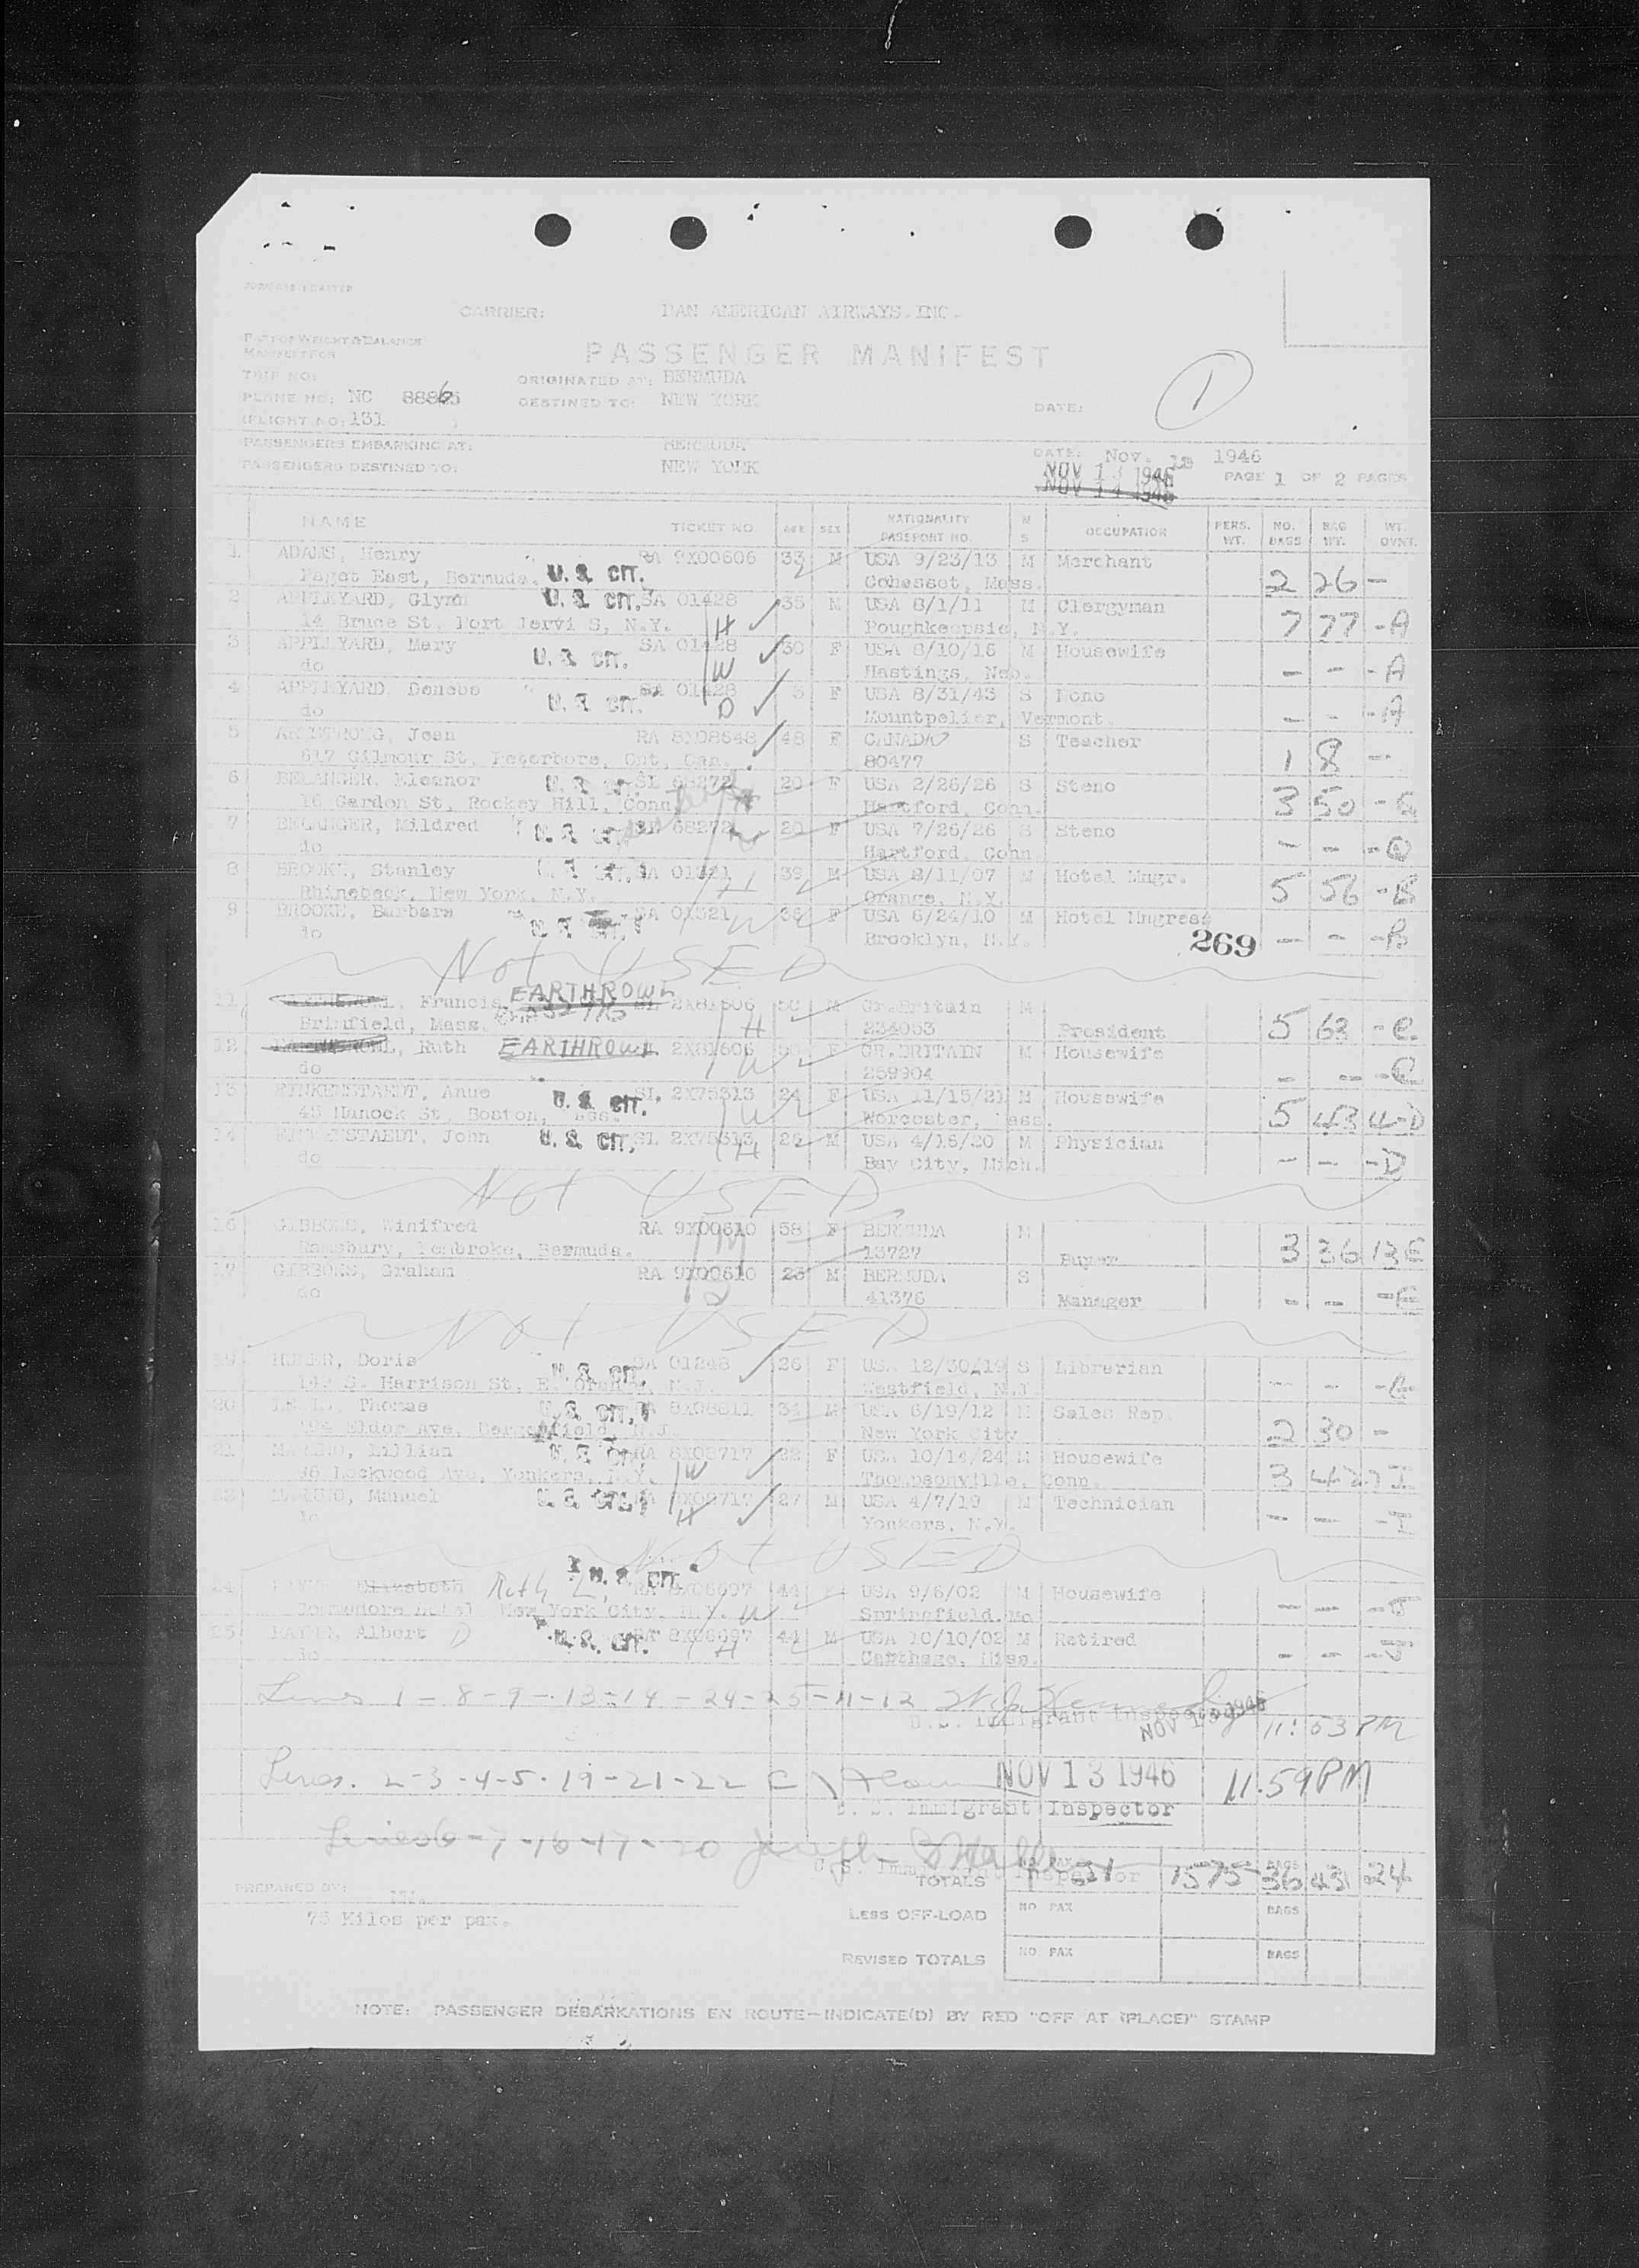 CARRIER: PAN AMERICAN AIRWAYS. INC.
PART OF WEIGHT & BALANCE
MANIFEST FOR
PASSENGER MANIFEST
TRIP NO:
ORIGINATED AT: BERMUDA
PLANE NO: NC
DESTINED TO: NEW YORK
DATE:
1
(FLIGHT NO: 131 )
PASSENGERS EMBARKING AT: BERMUDA
DATE: Nov. 1946
PASSENGERS DESTINED TO: NEW YORK
PAGE 1 OF 2 PAGES
NAME TICKET NO AGE SEX NATIONALITY PASSPORT NO. M S OCCUPATION PERS. WT. NO. BAGS BAG WT. WT. OVNT.
1 ADAMS, Henry RA 9X00606 33 M USA 9/23/13 M Merchant
Paget East, Bermuda. U. S. CIT. Cohasset, Mass. 2 26 -
2 APPLEYARD, Glynn U. S. CIT. SA 01428 35 M USA 8/1/11 M Clergyman
14 Bruce St. Port Jervi S, N.Y. H Poughkeepsie, N.Y. 7 77 -A
3 APPLEYARD, Mary U. S. CIT. SA 01428 30 F USA 8/10/16 M Housewife
do W Hastings, Neb. - - -A
4 APPLEYARD, Denebo U. S. CIT. SA 01428 3 F USA 8/31/43 S None
do D Mountpelier, Vermont. - - -A
5 ARMSTRONG, Jean RA 8X08648 48 F CANADA S Teacher
617 Gilmour St, Peterboro, Ont, Can. 80477 1 8 -
6 BELANGER, Eleanor U. S. CIT. SL 68272 20 F USA 2/26/26 S Steno
16 Garden St, Rockey Hill, Conn. Hartford, Conn. 3 50
7 BELANGER, Mildred U. S. CIT. SL 68272 20 F USA 7/26/26 S Steno
do Hartford, Conn - -
8 BROOKE, Stanley U. S. CIT. SA 01321 39 M USA 8/11/07 M Hotel Mngr.
Rhinebeck, New York, N.Y. H Orange, N.Y. 5 56 -B
9 BROOKE, Barbara SA 01321 36 F USA 6/24/10 M Hotel Mngress
do W Brooklyn, N.Y. 269 - - -B
Not USED
11 Francis EARTHROWL SL 2X81606 M Gr.Britain M
Brimfield, Mass. H 234053 President 5 63 -C
12 Ruth EARTHROWL 2X81606 F GR.BRITAIN M Housewife
do W 259904 - - -C
13 FINKENSTAEDT, Anne U. S. CIT. SL 2X75313 24 F USA 11/15/21 M Housewife
45 Hanock St, Boston, Mass. W Worcester, Mass. 5 43 4-D
14 FINKENSTAEDT, John U. S. CIT. SL 2X75313 26 M USA 4/16/20 M Physician
do H Bay City, Mich. - - -D
Not USED
16 GIBBONS, Winifred RA 9X00610 58 F BERMUDA M
Ramsbury, Pembroke, Bermuda. M 13727 Buyer 3 36 13E
17 GIBBONS, Graham RA 9X00610 23 M BERMUDA S
do 41376 Manager - - -E
Not USED
19 Doris U. S. CIT. SA 01248 26 F USA 12/30/19 S Librarian
S. Harrison St, E. Orange, N.J. Westfield, N.J - -
20 Thomas U. S. CIT. RA 8X08611 34 M USA 6/19/12 M Sales Rep.
Eldor Ave, Bergenfield, N.J. New York City 2 30 -
21 Lillian U. S. CIT. RA 8X08717 22 F USA 10/14/24 M Housewife
Lockwood Ave, Yonkers, N.Y. W Thompsonville, Conn. 3 42
22 Manuel U. S. CIT. 8X08717 27 M USA 4/7/19 M Technician
do H Yonkers, N.Y. - -
Not USED
24 Elizabeth Ruth L, U. S. CIT. RA 8X08697 44 F USA 9/6/02 M Housewife
Commodore Hotel New York City, N.Y. W Springfield, Mo - - -J
25 PAYNE, Albert D U. S. CIT. RA 8X08697 44 M USA 10/10/02 M Retired
do H Carthage, Miss. - - -J
Lines 1-8-9-13-14-24-25-11-12
U.S. Immigrant Inspector NOV 13 1946 11:53 PM
Lines. 2-3-4-5-19-21-22 NOV 13 1946 11:59 PM
U. S. Immigrant Inspector
Lines 6-7-16-17-20 Joseph
U.S. Immigrant Inspector
TOTALS NO. PAX 21 1575 BAGS 36 431 24
PREPARED BY:
75 Kilos per pax.
LESS OFF-LOAD NO PAX BAGS
REVISED TOTALS NO PAX BAGS
NOTE: PASSENGER DEBARKATIONS EN ROUTE—INDICATE(D) BY RED "OFF AT (PLACE)" STAMP